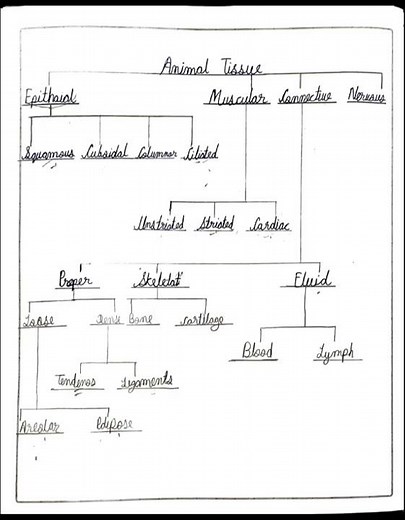 Animal Tissue
Epithaial Muscular Connective Nervous
Squamous Cuboidal Columnar Ciliated
Unstriated Striated Cardiac
Proper Skeletal Fluid
Loose Dense Bone Cartilage
Blood Lymph
Tendinos Ligaments
Areolar Adipose